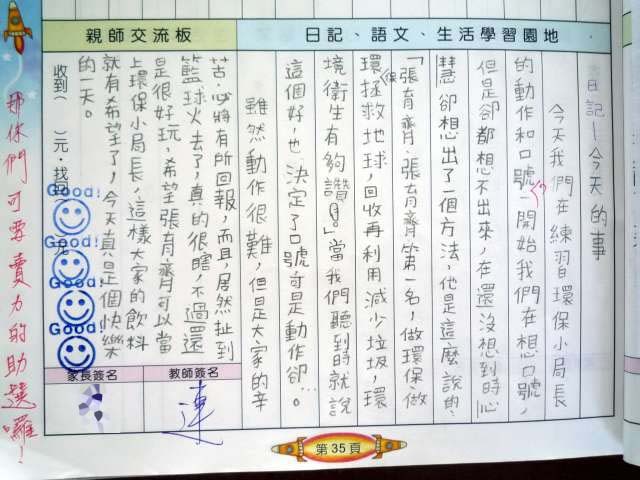 日記、語文、生活學習園地
親師交流板
日記—今天的事
今天我們在練習環保小局長
的動作和口號,一開始我們在想口號,
但是卻都想不出來,在還沒想到時心
慧卻想出了一個方法,他是這麼說的:
「張育齊,張育齊第一名,做環保,做
環保拯救地球,回收再利用減少垃圾,環
境衛生有夠讚!」當我們聽到時就說
這個好!也決定了口號可是動作卻…。
雖然動作很難,但是大家的辛
苦必將有所回報,而且居然扯到
籃球火去了,真的很瞎,不過還
是很好玩,希望張育齊可以當
上環保小局長,這樣大家的飲料
就有希望了,今天真是個快樂
的一天。
收到( )元.找回( )元
Good!
Good!
Good!
Good!
家長簽名
教師簽名
連
第35頁
那你們可要賣力的助選囉!